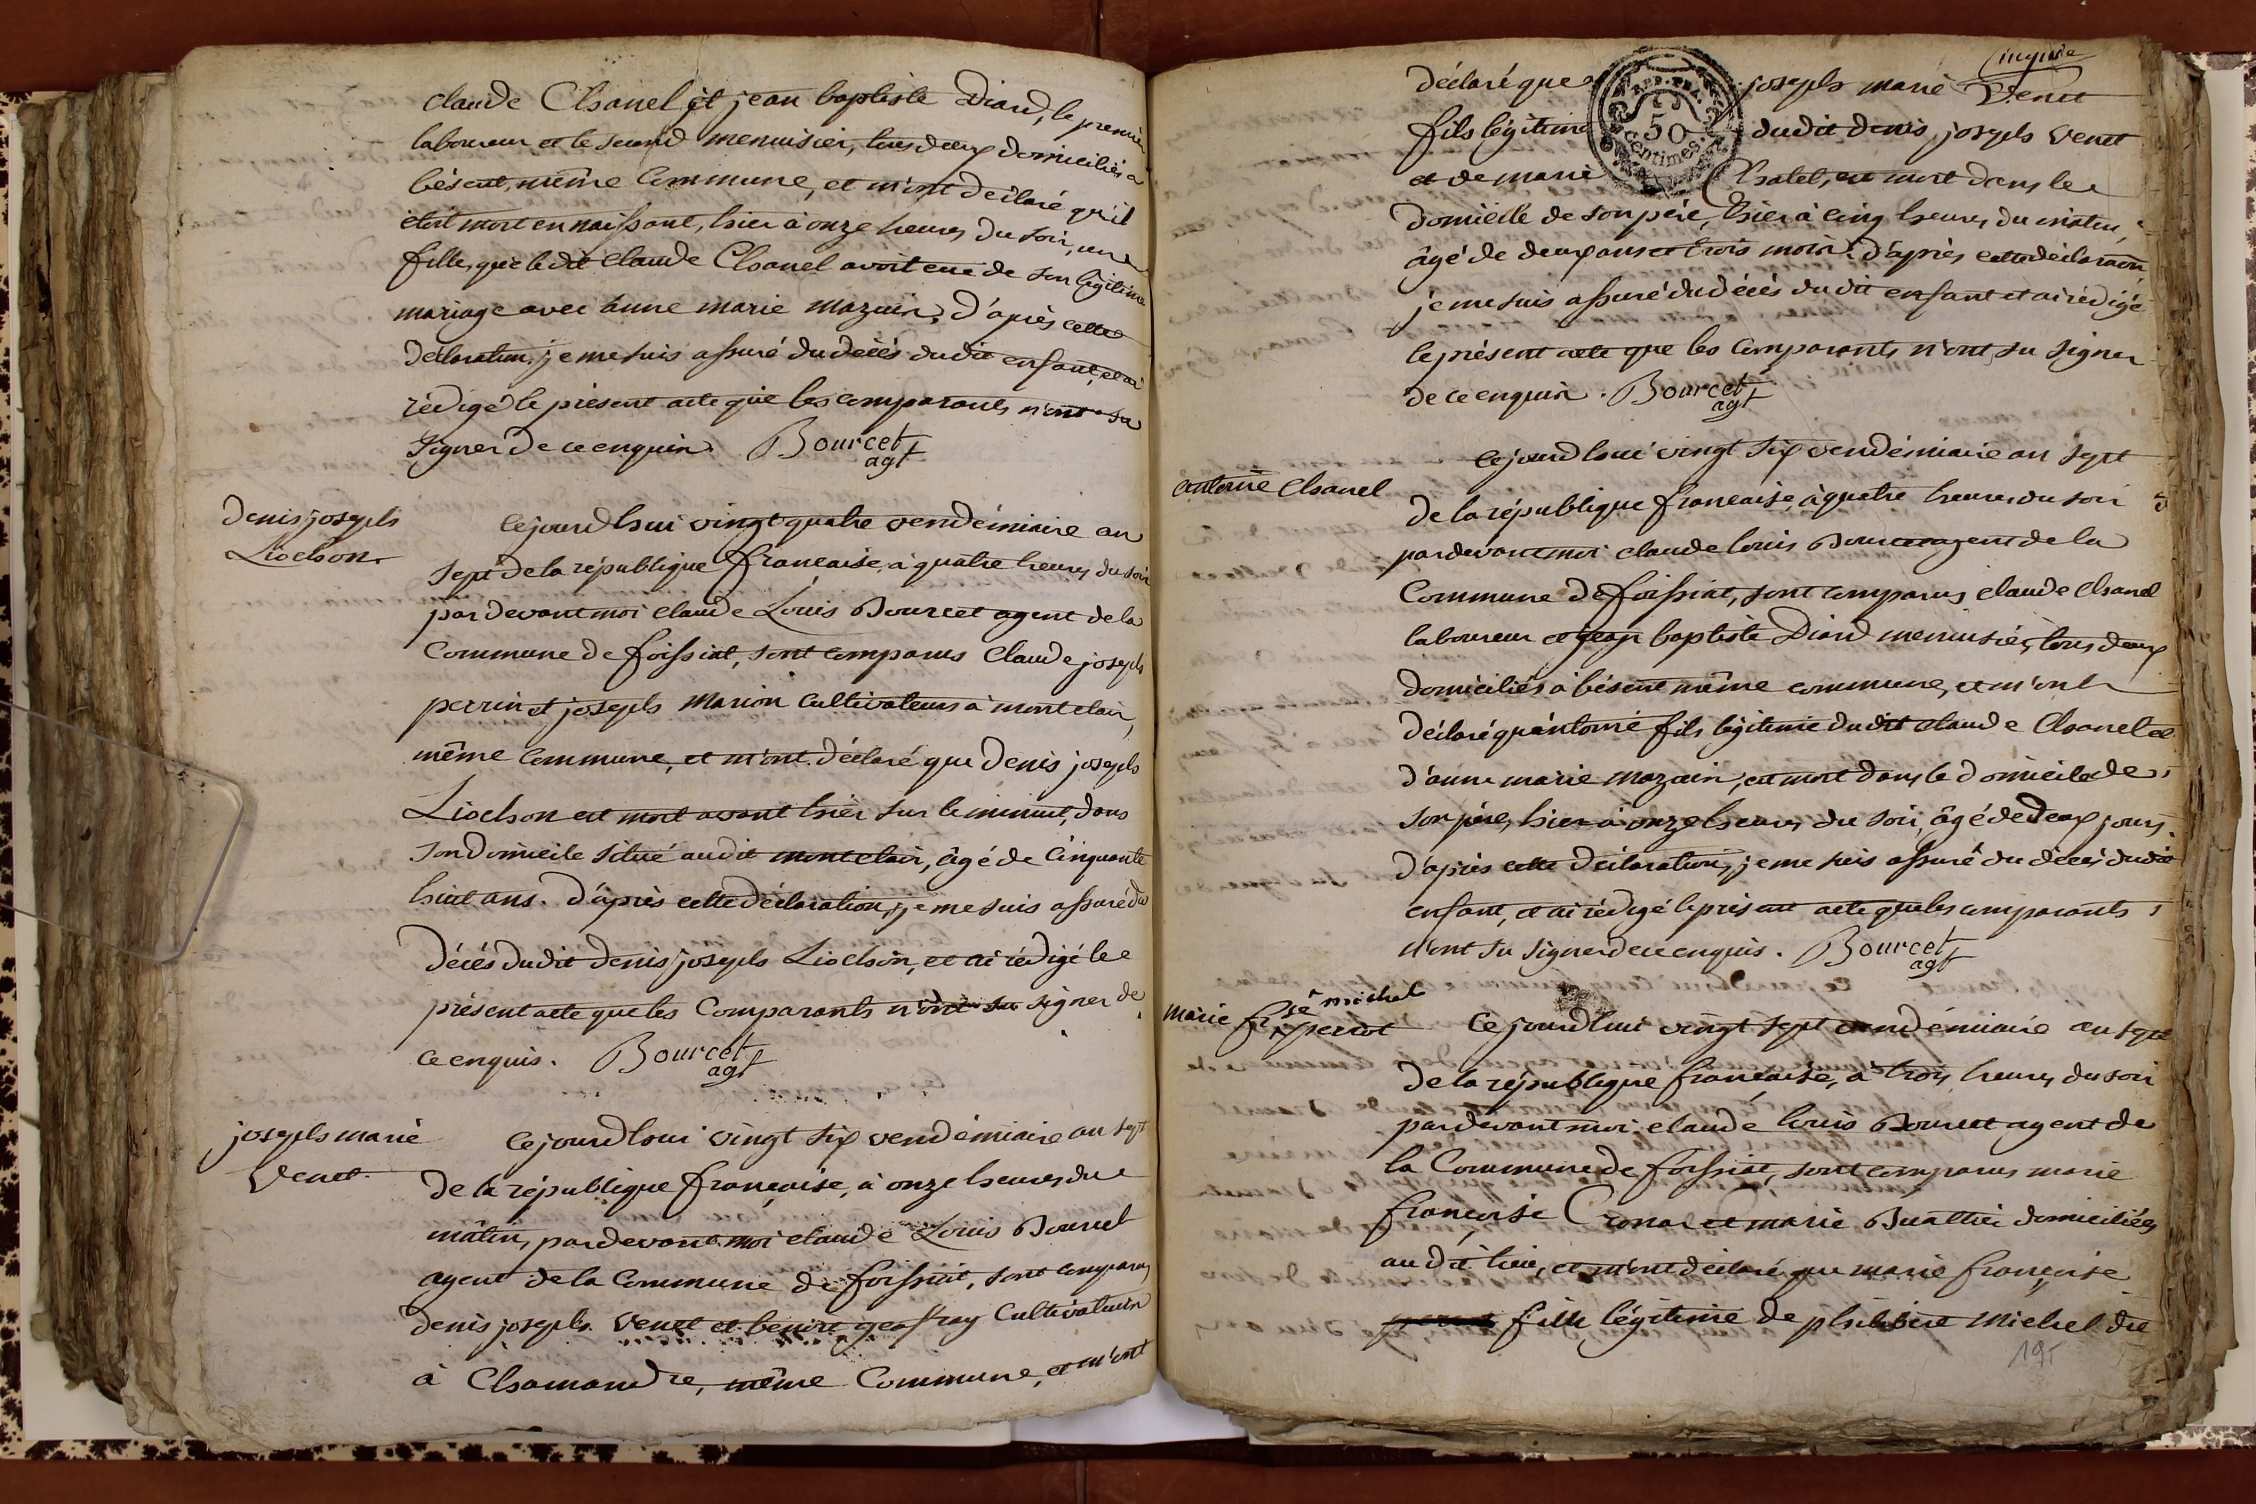 claude Chanel et jean baptiste Diard, le premier
laboureur et le second menuisier, tous deux domiciliés a
béseut, même Commune, et m'ont déclaré qu'il
étoit mort en naissant, hier à onze heures du soir, une
fille, que le dit Claude Chanel avoit eue de son légitime
mariage avec anne marie mazuin. D'après cette
déclaration, je me suis assuré du décès dudit enfant, et ai
rédigé le présent acte que les comparants n'ont su
signer de ce enquis. Bourcet
agt
Denis joseph
Liochon
Cejourdhui vingt quatre vendémiaire an
sept de la république française, à quatre heures du soir
pardevant moi claude Louis Bourcet agent de la
Commune de foissiat, sont comparus Claude joseph
perrin et joseph marion cultivateurs à montclair,
même Commune, et m'ont déclaré que Denis joseph
Liochon est mort avant hier sur le minuit, dans
son Domicile situé audit montclair, âgé de Cinquante
huit ans. D'après cette déclaration, je me suis assuré du
Décès dudit Denis joseph Liochon, et ai rédigé le
présent acte que les Comparants n'ont su signer de
ce enquis. Bourcet
agt
joseph marie
venet
Cejourdhui vingt six vendémiaire an sept
de la république française, à onze heures du
mâtin, pardevant moi claude Louis Bourcet
agent de la Commune de foissiat, sont comparus
denis joseph venet et benoit geoffray Cultivateurs
à Chamandre, même Commune, et m'ont
déclaré que joseph marie venet
REP. FRA.
50
Centimes
fils légitime dudit denis joseph venet
et de marie Chatel, est mort dans le
domicile de son père, hier à cinq heures du matin,
âgé de deux ans et trois mois. d'après cette déclaraon
je me suis assuré du décès dudit enfant et ai rédigé
le présent acte que les Comparants n'ont su signer
de ce enquis. Bourcet
agt
antoine Chanel
Cejourdhui vingt six vendémiaire an sept
de la république française, à quatre heures du soir
pardevant moi claude louis Bourcet agent de la
Commune de foissiat, sont comparus claude Chanel
laboureur et jean baptiste Diard menuisier, tous deux
domiciliés à béseut même commune, et m'ont
déclaré qu'antoine fils légitime dudit claude Chanel et
d'anne marie mazuin, est mort dans le domicile de
son père, hier à onze heures du soir, âgé de Deux jours.
d'après cette déclaration, je me suis assuré du décès dudit
enfant, et ai rédigé le présent acte que les comparants
n'ont su signer de ce enquis. Bourcet
agt
marie frse michel
perrot
Cejourdhui vingt sept vendémiaire an sept
de la république française, à trois heures du soir
pardevant moi claude louis Bourcet agent de
la Commune de foissiat, sont comparus marie
françoise Cronar et marie Buattier domiciliées
audit lieu, et m'ont déclaré que marie françoise
fille légitime de philibert Michel dit
195